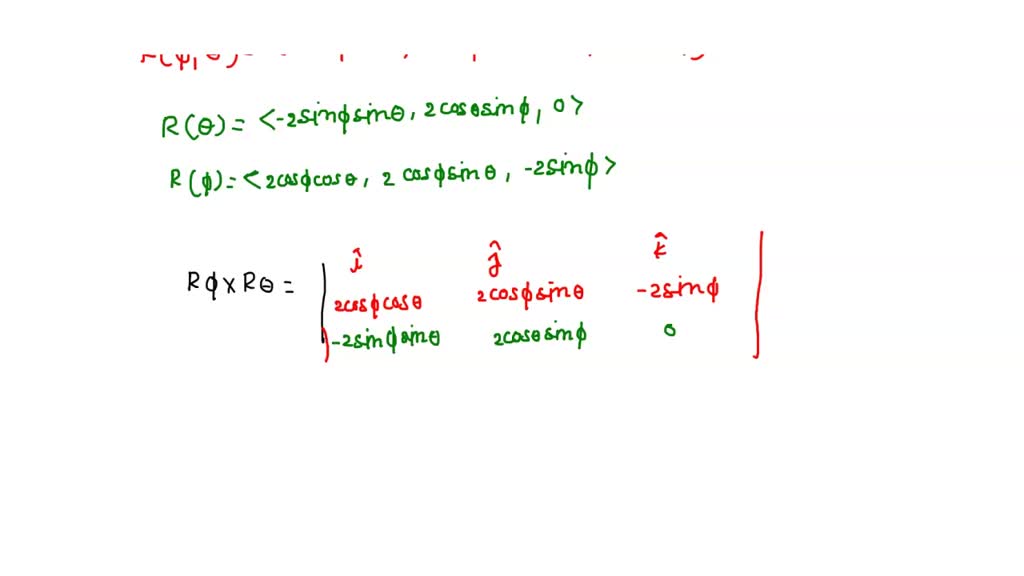 R(θ) = <-2sinϕsinθ, 2cosθsinϕ, 0>
R(ϕ) = <2cosϕcosθ, 2cosϕsinθ, -2sinϕ>
î ĵ k̂
Rϕ x Rθ =
2cosϕcosθ 2cosϕsinθ -2sinϕ
-2sinϕsinθ 2cosθsinϕ 0